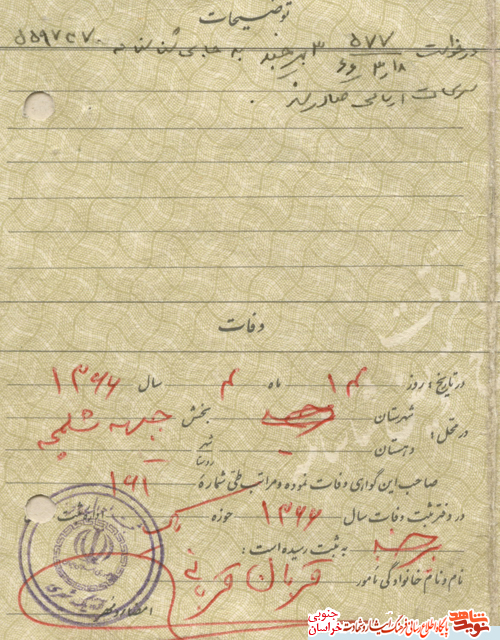 توضیحات
درخواست ۵۷۷ ۱۸ر۳ر۶۶ ۳ بیرجند به جای شناسنامه
صادر شد
وفات
در تاریخ: روز ۱۴ ماه ۴ سال ۱۳۶۶
در محل: شهرستان بخش جبهه شلمچه
دهستان - شهر روستا -
صاحب این گواهی وفات نموده و مراتب طی شماره ۱۶۱
در دفتر ثبت وفات سال ۱۳۶۶ حوزه
بیرجند به ثبت رسیده است:
نام و نام خانوادگی مأمور قربان قربانی
امضاء و مهر
نوید شاهد
پایگاه اطلاع رسانی فرهنگ ایثار و شهادت خراسان جنوبی